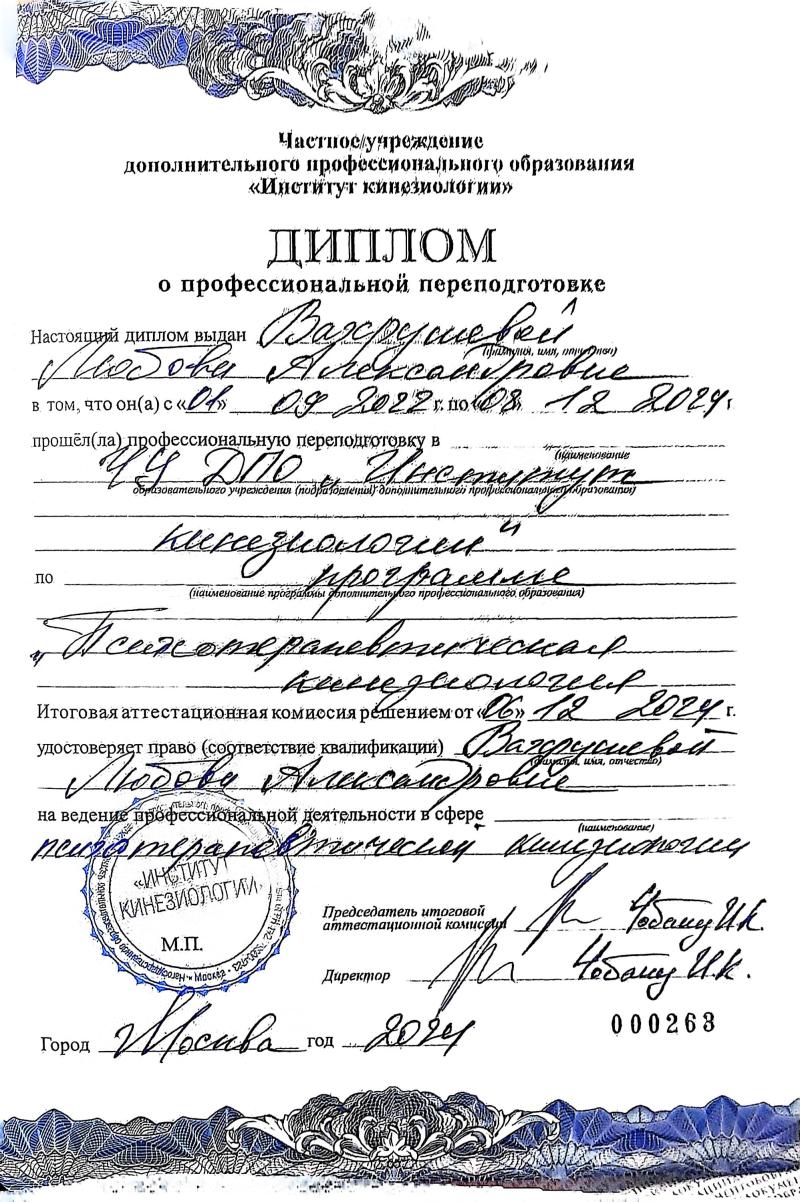 Частное учреждение
дополнительного профессионального образования
«Институт кинезиологии»
ДИПЛОМ
о профессиональной переподготовке
Настоящий диплом выдан Вахрушевой
(фамилия, имя, отчество)
Любови Александровне
в том, что он(а) с «01» 09 2022 г. по «08» 12 2024 г.
прошёл(ла) профессиональную переподготовку в
(наименование
ЧУ ДПО „Институт
образовательного учреждения (подразделения) дополнительного профессионального образования)
кинезиологии“
по программе
(наименование программы дополнительного профессионального образования)
„Психотерапевтическая
кинезиология
Итоговая аттестационная комиссия решением от «06» 12 2024 г.
удостоверяет право (соответствие квалификации) Вахрушевой
(фамилия, имя, отчество)
Любови Александровне
на ведение профессиональной деятельности в сфере
(наименование)
психотерапевтической кинезиологии
«ИНСТИТУТ
КИНЕЗИОЛОГИИ»
М.П.
Председатель итоговой
аттестационной комиссии Чобану И.К.
Директор Чобану И.К.
Город Москва год 2024
000263